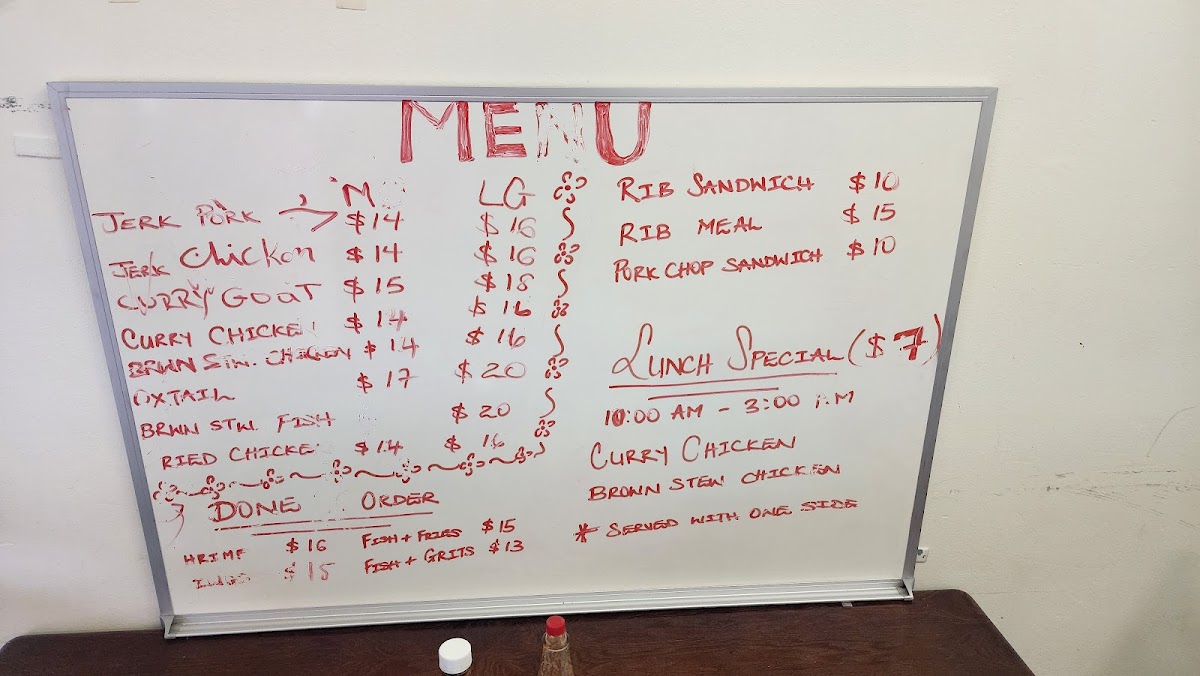 MENU
M LG
JERK PORK $14 $16
JERK Chicken $14 $16
CURRY GOAT $15 $18
CURRY CHICKE $14 $16
BRWN STW. CHICKEN $14 $16
OXTAIL $17 $20
BRWN STW. FISH $20
RIED CHICKE $14 $16
DONE ORDER
HRIMP $16 FISH + FRIES $15
$15 FISH + GRITS $13
RIB SANDWICH $10
RIB MEAL $15
PORK CHOP SANDWICH $10
LUNCH SPECIAL ($7)
10:00 AM - 3:00 P.M
CURRY CHICKEN
BROWN STEW CHICKEN
* SERVED WITH ONE SIDE